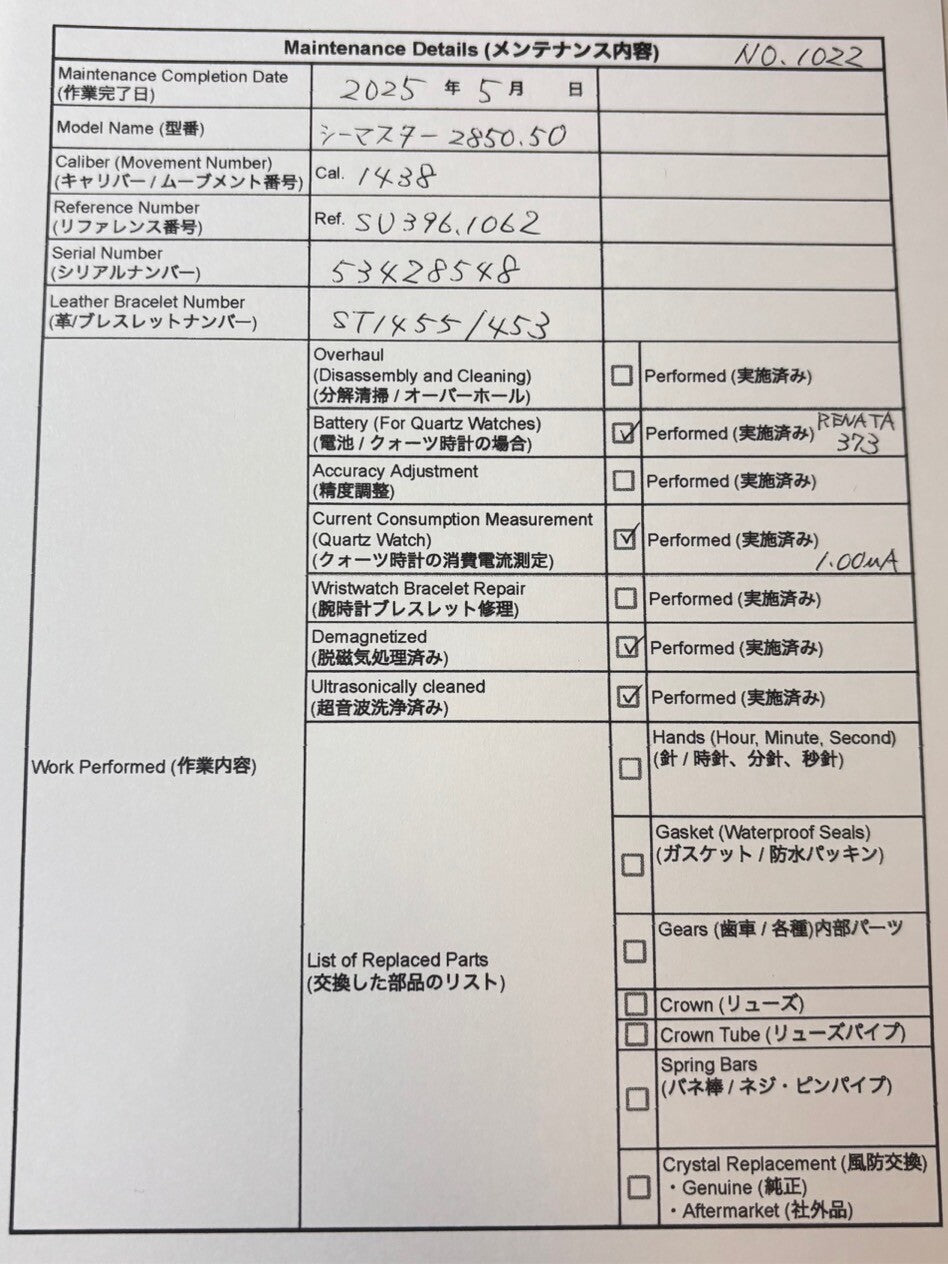 Maintenance Details (メンテナンス内容) NO.1022
Maintenance Completion Date
(作業完了日)
2025 年 5 月 日
Model Name (型番)
シーマスター 2850.50
Caliber (Movement Number)
(キャリバー / ムーブメント番号)
Cal. 1438
Reference Number
(リファレンス番号)
Ref. SU396.1062
Serial Number
(シリアルナンバー)
53428548
Leather Bracelet Number
(革/ブレスレットナンバー)
ST1455/453
Work Performed (作業内容)
Overhaul
(Disassembly and Cleaning)
(分解清掃 / オーバーホール)
Performed (実施済み)
Battery (For Quartz Watches)
(電池 / クォーツ時計の場合)
Performed (実施済み) RENATA
373
Accuracy Adjustment
(精度調整)
Performed (実施済み)
Current Consumption Measurement
(Quartz Watch)
(クォーツ時計の消費電流測定)
Performed (実施済み)
1.00uA
Wristwatch Bracelet Repair
(腕時計ブレスレット修理)
Performed (実施済み)
Demagnetized
(脱磁気処理済み)
Performed (実施済み)
Ultrasonically cleaned
(超音波洗浄済み)
Performed (実施済み)
List of Replaced Parts
(交換した部品のリスト)
Hands (Hour, Minute, Second)
(針 / 時針、分針、秒針)
Gasket (Waterproof Seals)
(ガスケット / 防水パッキン)
Gears (歯車 / 各種)内部パーツ
Crown (リューズ)
Crown Tube (リューズパイプ)
Spring Bars
(バネ棒 / ネジ・ピンパイプ)
Crystal Replacement (風防交換)
・Genuine (純正)
・Aftermarket (社外品)